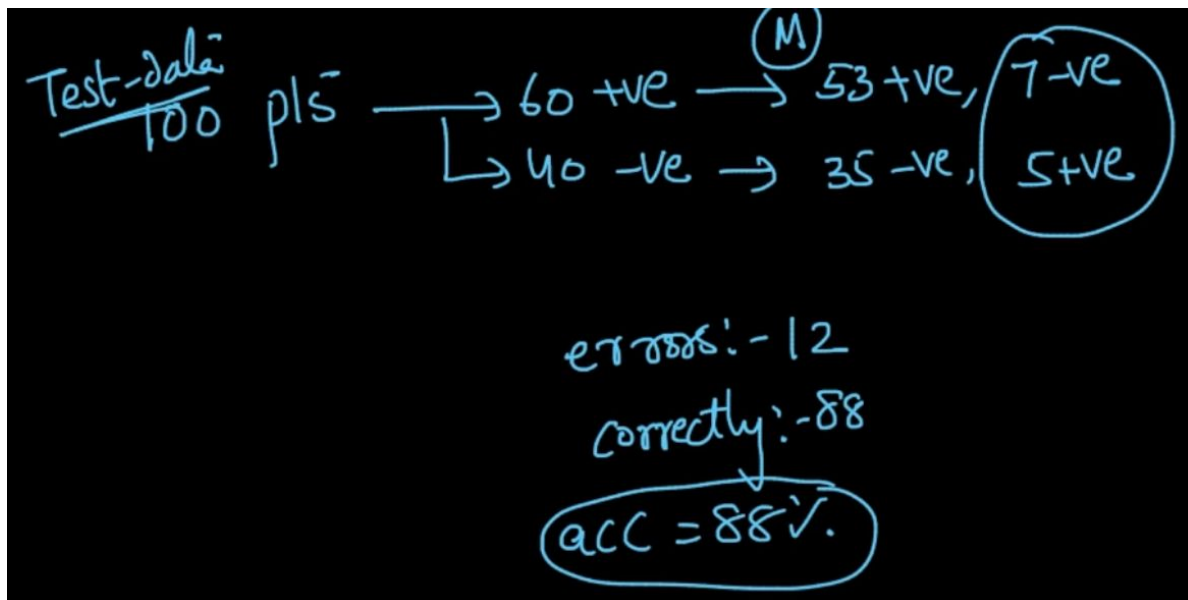 Test-data
M
100 pts → 60 +ve → 53 +ve, 7 -ve
→ 40 -ve → 35 -ve, 5 +ve
errors:- 12
correctly:- 88
acc = 88%.